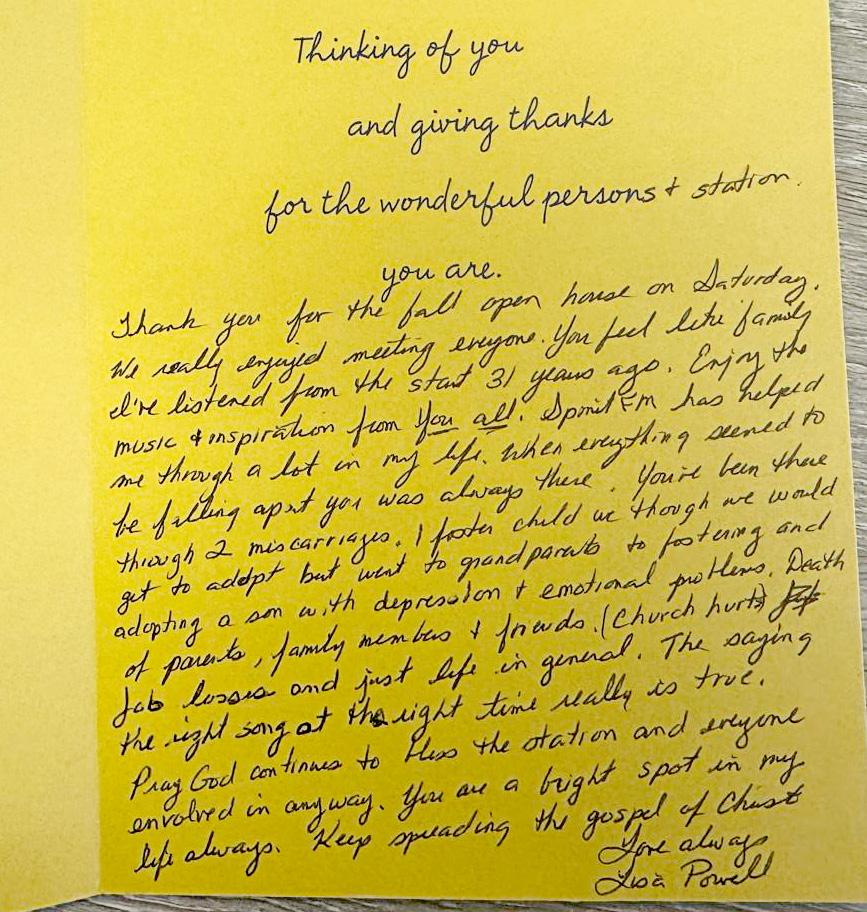 Thinking of you
and giving thanks
for the wonderful persons + station.
you are.
Thank you for the fall open house on Saturday.
We really enjoyed meeting everyone. You feel like family
I've listened from the start 31 years ago. Enjoy the
music & inspiration from you all. Spirit FM has helped
me through a lot in my life. When everything seemed to
be falling apart you was always there. You've been there
through 2 miscarriages. 1 foster child we though we would
get to adopt but went to grandparents to fostering and
adopting a son with depression + emotional problems. Death
of parents, family members & friends. (Church hurts)
Job losses and just life in general. The saying
the right song at the right time really is true.
Pray God continues to bless the station and everyone
envolved in anyway. You are a bright spot in my
life always. Keep spreading the gospel of Christ
Love always
Lisa Powell